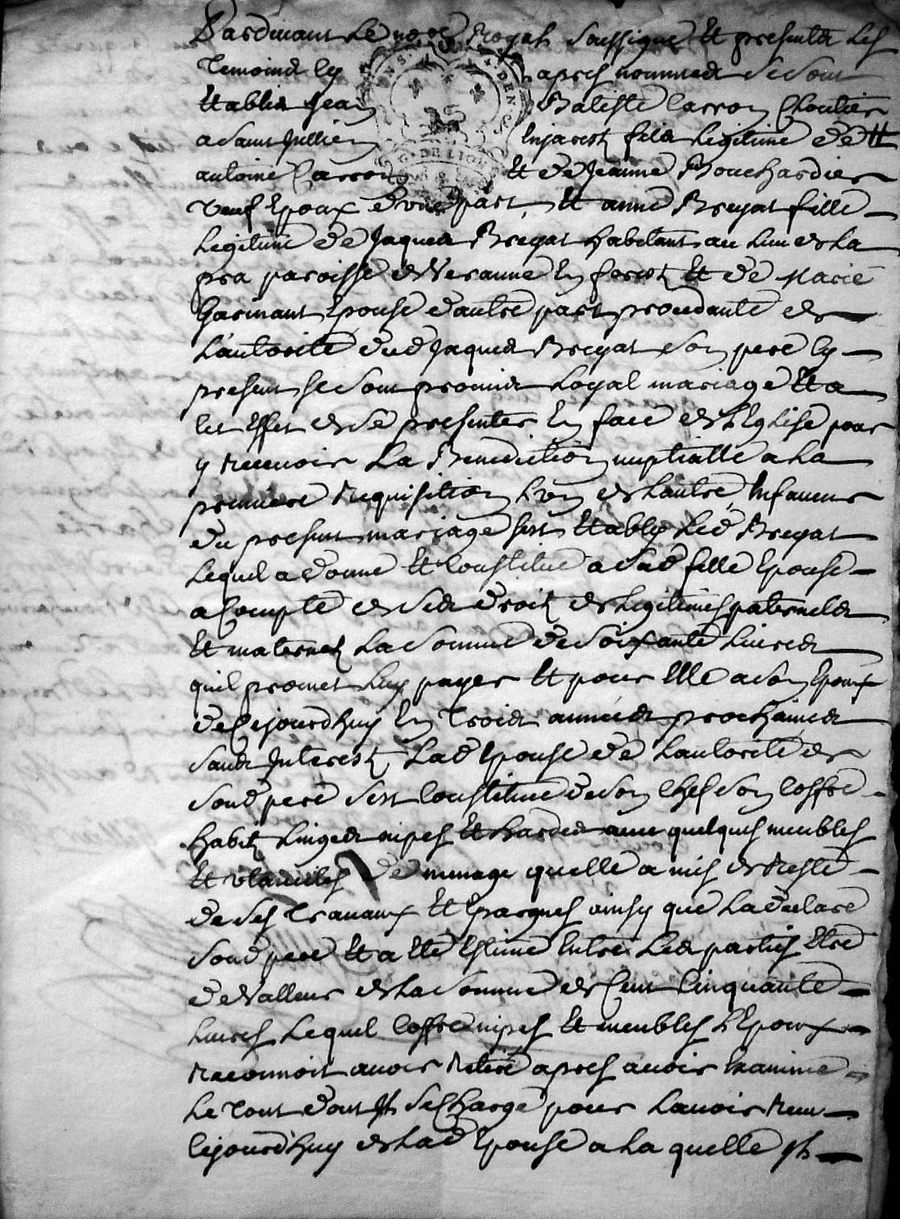 Pardevant le no.re Royal soussigné et presents les
temoins cy apres nommés se sont
etablis Jean Batiste Carron Cloutier
a Saint Jullien en Jarest fils legitime de ff
antoine Carron et de Jeanne Bouchardier
veuf Epoux d'une part, et anne Breyat fille
legitime de Jaques Breyat habitant au lieu de la
pra paroisse de Veranne en forest et de Marie
Garinant Epouse d'autre part procedante de
L'autorité dud Jaques Breyat son pere cy
present se sont promis Loyal mariage et a
cet Effet de se presenter En face de L'Eglise pour
y recevoir La Benediction nuptialle a La
premiere Requisition L'un de L'autre, En faveur
du present mariage sest Etably led Breyat
Lequel a donné et Constitué a sad fille Epouse
a Compte de ses droits de Legitimes paternels
et maternels La Somme de Soixante Livres
quil promet Luy payer et pour Elle a son Epoux
de Cejourdhuy En Trois années prochaines
sans Interest, Lad Epouse de L'autorité de
sond pere sest Constituée de son Chef son Coffre
habits Linges nipes et hardes avec quelques meubles
et utancilles de menage quelle a mis de Reste
de ses Travaux et Epargnes ainsy que La declaré
sond pere et a eté Estimé Entre Les parties Etre
de valleur de La Somme de Cent Cinquante
Livres Lequel Coffre nipes et meubles L'Epoux
Reconnoit avoir Retiré apres avoir Examiné
Le Tout dont Il se Charge pour L'avoir Reçu
Cejourdhuy de Lad Epouse a La quelle Il